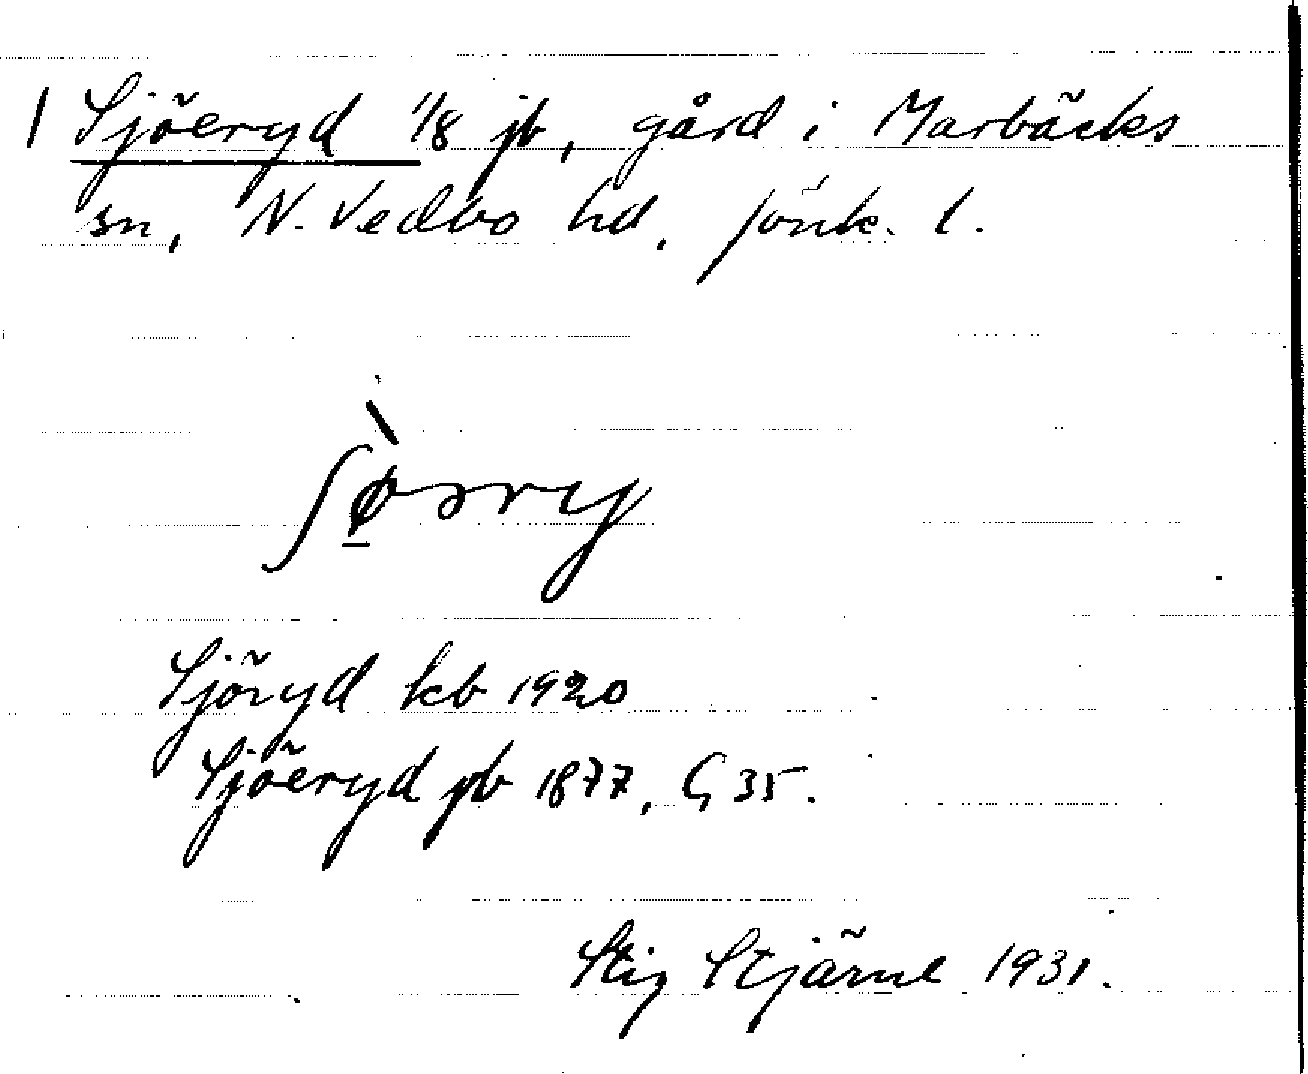 1 Sjöeryd 1/8 jb, gård i Marbäcks
sn, N. Vedbo hd, Jönk. l.
Sjöryd kb 1920
Sjöeryd pb 1877, G 35.
Stig Stjärne 1931.